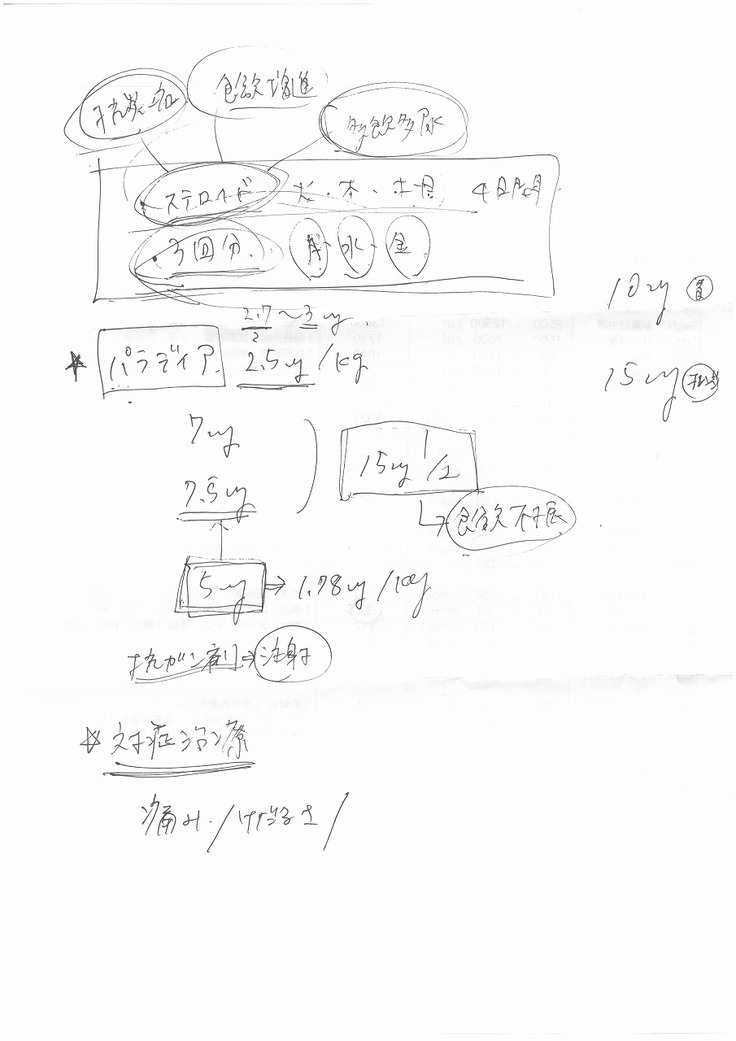 抗炎症 食欲増進 多飲多尿
ステロイド 火・木・土日 4日間
・3回分. 月・水・金
10mg
2.7〜3mg
2
★ パラディア 2.5mg/kg
15mg
7mg
7.5mg
15mg 1/2
↳食欲不振
5mg → 1.78mg/kg
抗がん剤⇒注射
☆対症治療
痛み/けだるさ/